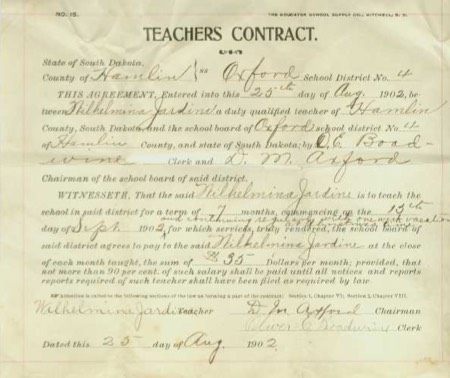 NO. 15. THE EDUCATOR SCHOOL SUPPLY CO., MITCHELL, S. D.
TEACHERS CONTRACT.
State of South Dakota,
County of Hamlin ss Oxford School District No. 4
THIS AGREEMENT, Entered into this 25th day of Aug. 1902, be
tween Wilhelmina Jardine a duty qualified teacher of Hamlin
County, South Dakota, and the school board of Oxford school district No. 4
of Hamlin County, and state of South Dakota, by O. C. Boad-
wine Clerk and D. M. Axford
Chairman of the school board of said district.
WITNESSETH, That the said Wilhelmina Jardine is to teach the
school in said district for a term of months, commencing on the 15th
and continuing one week vacation
day of Sept. 1902, for which services, truly rendered, the school board of
said district agrees to pay to the said Wilhelmina Jardine at the close
of each month taught, the sum of $35 Dollars per month; provided, that
not more than 90 per cent. of such salary shall be paid until all notices and reports
reports required of such teacher shall have been filed as required by law.
is called to the following sections of the law as forming a part of the contract: Section 1, Chapter VI; Section 2, Chapter VIII.
Wilhelmina Jardine Teacher D. M. Axford Chairman
Oliver C. Boadwine Clerk
Dated this 25 day of Aug 1902